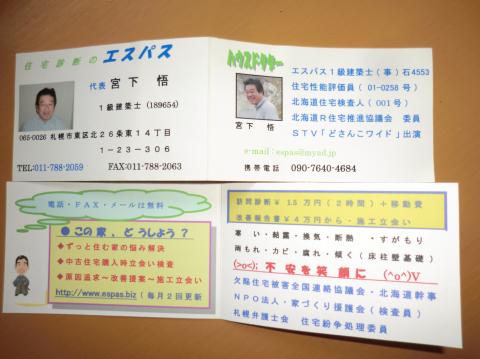 住宅診断のエスパス
代表 宮下 悟
1級建築士 (189654)
065-0026 札幌市東区北26条東14丁目
1－23－306
TEL:011-788-2059 FAX:011-788-2063
ハウスドクター
宮下 悟
エスパス1級建築士(事)石4553
住宅性能評価員(01-0258号)
北海道住宅検査人(001号)
北海道R住宅推進協議会 委員
STV「どさんこワイド」出演
e-mail:espas@myad.jp
携帯電話 090-7640-4684
電話・FAX・メールは無料
● この家、どうしよう?
◆ずっと住む家の悩み解決
◆中古住宅購入時立会い検査
◆原因追求～改善提案～施工立会い
http://www.espas.biz (毎月2回更新
訪問診断¥1.5万円(2時間)＋移動費
改善報告書¥4万円から・施工立会い
寒い・結露・換気・断熱・すがもり
雨もれ・カビ・腐れ・傾く(床柱壁基礎)
(>o<); 不安を笑顔に (^o^)V
欠陥住宅被害全国連絡協議会・北海道幹事
NPO法人・家づくり援護会(検査員)
札幌弁護士会 住宅紛争処理委員